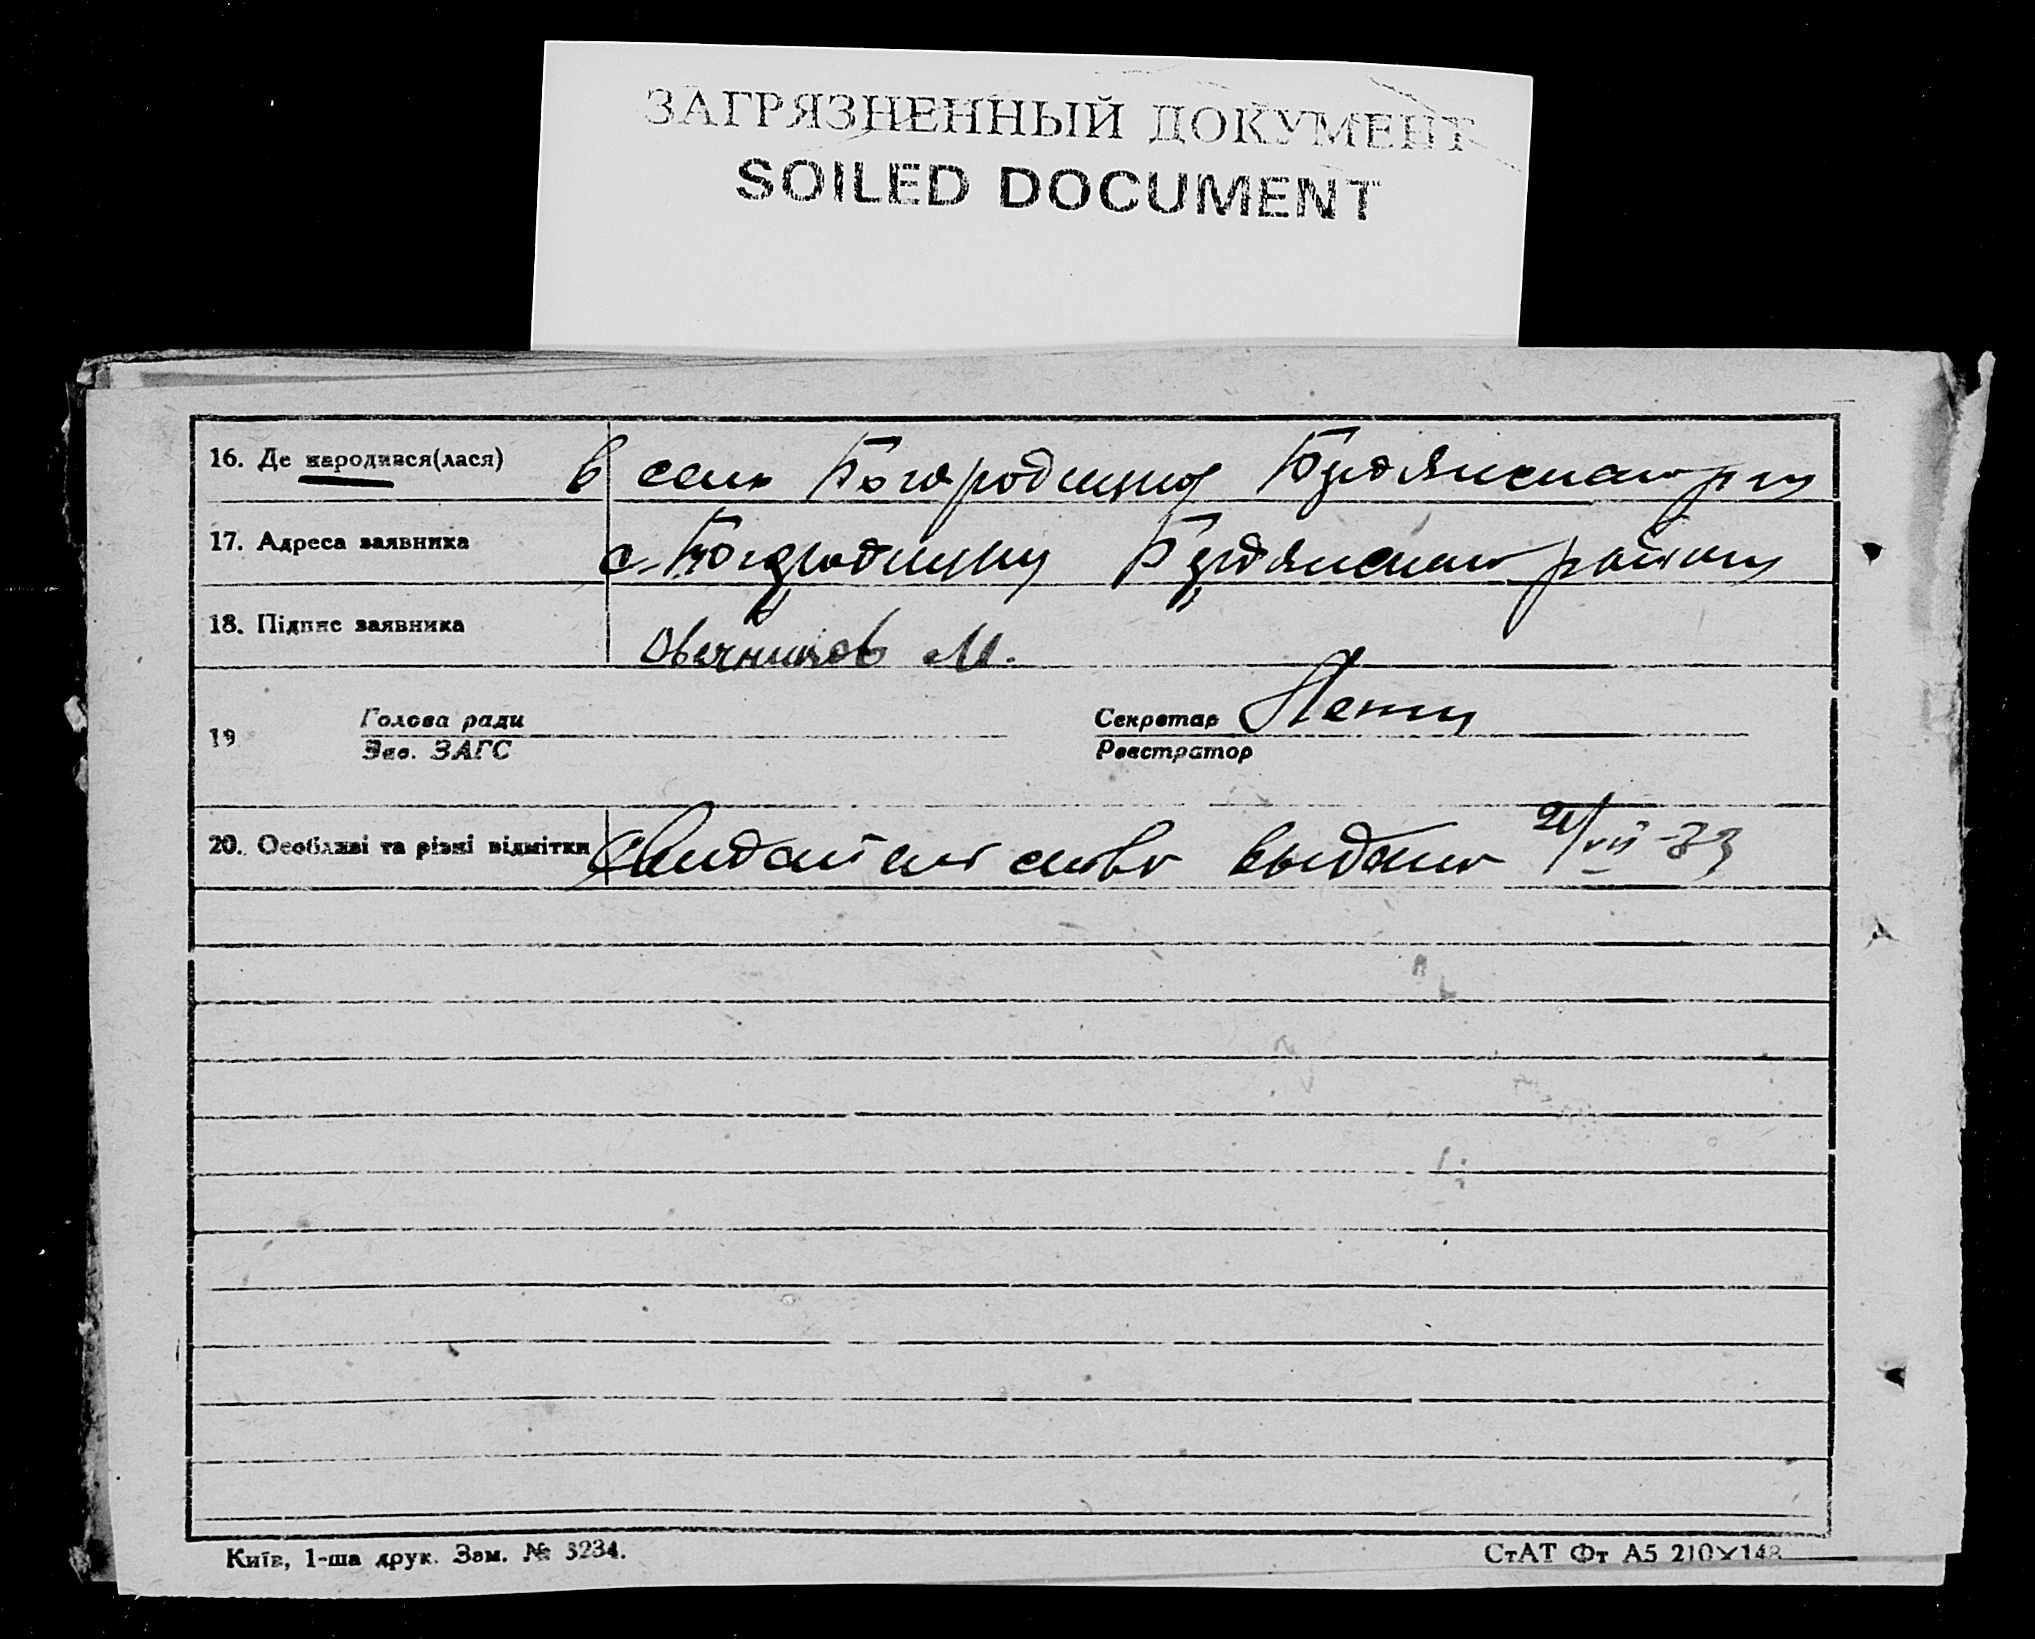 ЗАГРЯЗНЕННЫЙ ДОКУМЕНТ
SOILED DOCUMENT
16. Де народився(лася) в селе Богородицкое Будянскаго р-ну
17. Адреса заявника с. Будянскаго району
18. Підпис заявника Овечников М.
Голова ради Секретар
19 Зав. ЗАГС Реєстратор
20. Особливі та різні відмітки Свидетельство выдано 21/VII-33
Київ, 1-ша друк. Зам. № 3234. СтАТ Фт А5 210×148